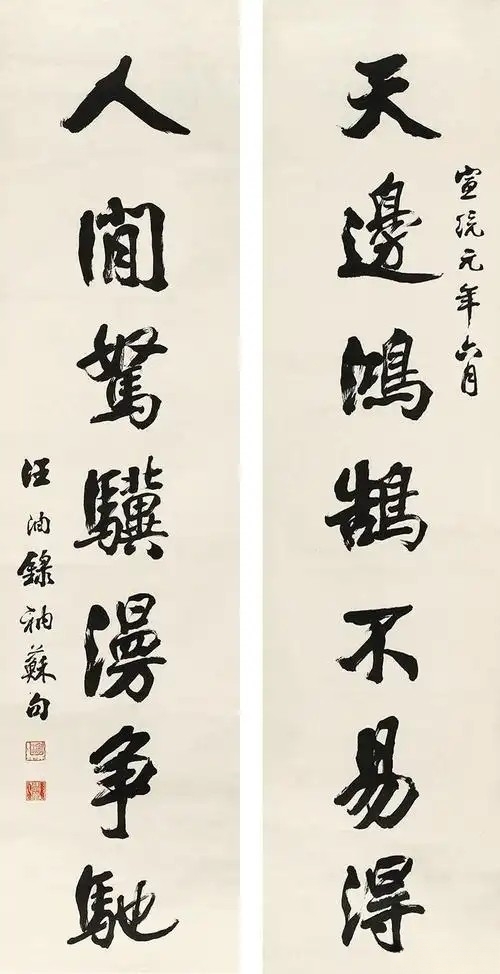 宣統元年六月
天邊鴻鵠不易得
人閒駑驥漫争馳
汪洵錄衲蘇句